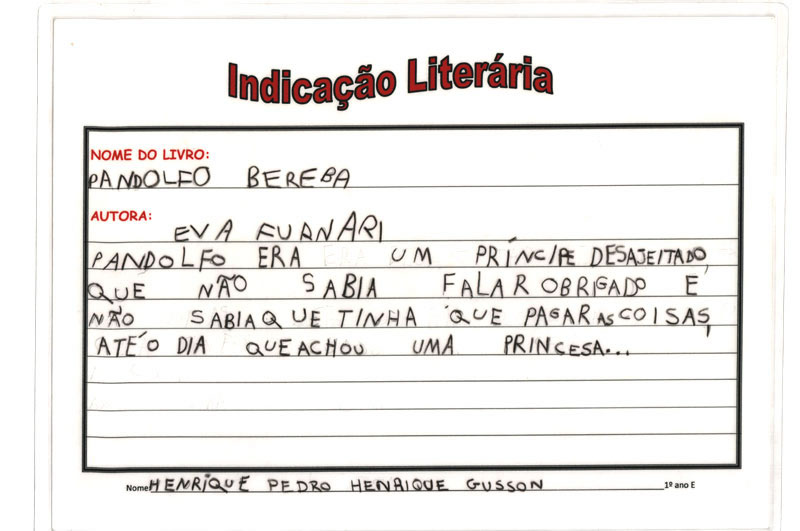 Indicação Literária
NOME DO LIVRO:
PANDOLFO BEREBA
AUTORA:
EVA FURNARI
PANDOLFO ERA UM PRÍNCIPE DESAJEITADO,
QUE NÃO SABIA FALAR OBRIGADO E
NÃO SABIA QUE TINHA QUE PAGAR AS COISAS,
ATÉ O DIA QUE ACHOU UMA PRINCESA...
Nome HENRIQUE PEDRO HENRIQUE GUSSON 1º ano E